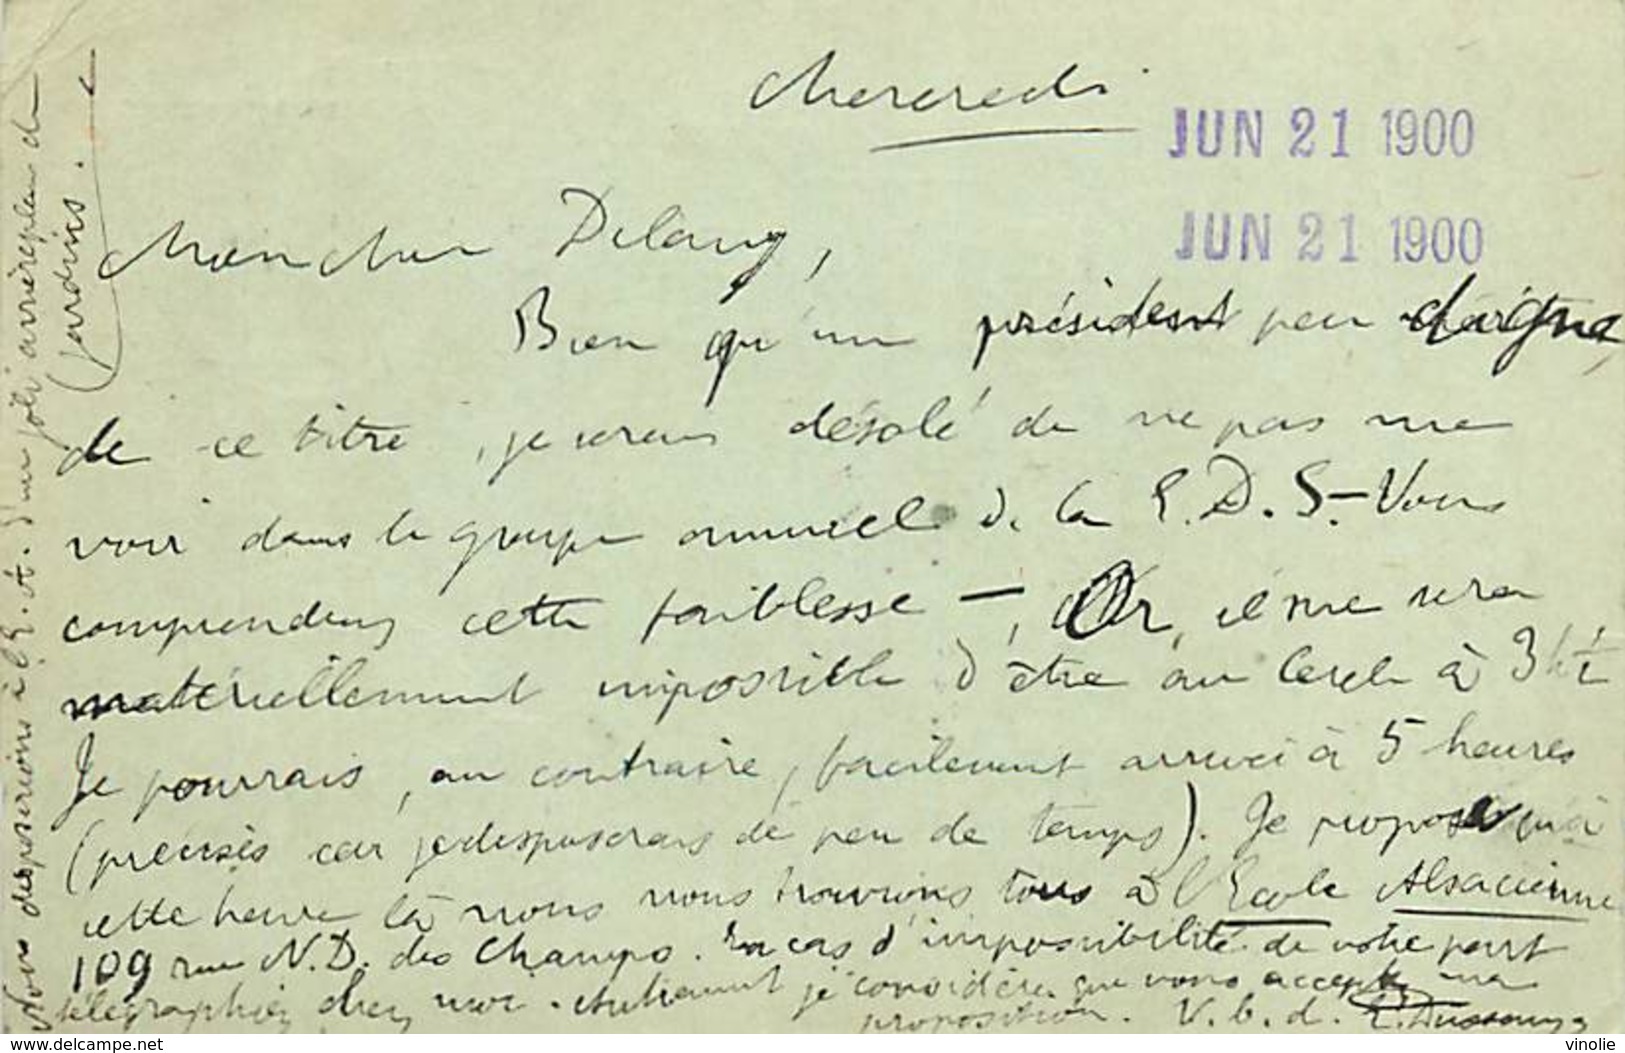 Mercredi
JUN 21 1900
JUN 21 1900
Mon cher Delaug,
Bien qu'un président peu digne
de ce titre, je serais désolé de ne pas me
voir dans le groupe annuel de la E.D.S. - Vous
comprendrez cette faiblesse - Or, il me sera
matériellement impossible d'être au Cercle à 3h ½
Je pourrais, au contraire, facilement arriver à 5 heures
(précises car je disposerais de peu de temps). Je propose qu'à
cette heure là nous nous trouvions tous à l'Ecole Alsacienne
109 rue N.D. des Champs. En cas d'impossibilité de votre part
télégraphiez chez moi. Autrement je considère que vous acceptez ma
proposition. V. b. d.
Nous disposerions à l'E.A. d'un joli arrièreplan de
jardins.
delcampe.net
vinolie